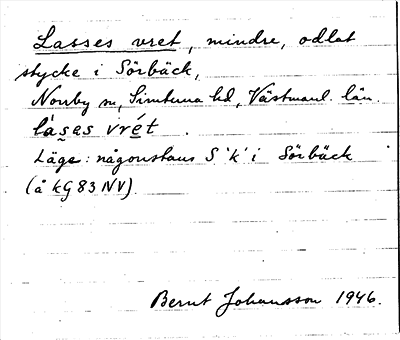 Lasses vret, mindre, odlat
stycke i Sörbäck,
Norrby sn, Simtuna hd, Västmanl. län.
låses vrét.
Läge: någonstans S 'k' i Sörbäck
(å kG 83 NV)
Bernt Johansson 1946.